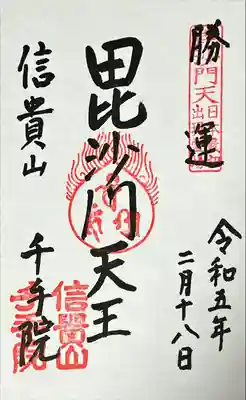 勝運
令和五年
二月十八日
毘沙門天王
信貴山
千手院
信貴山
千手院